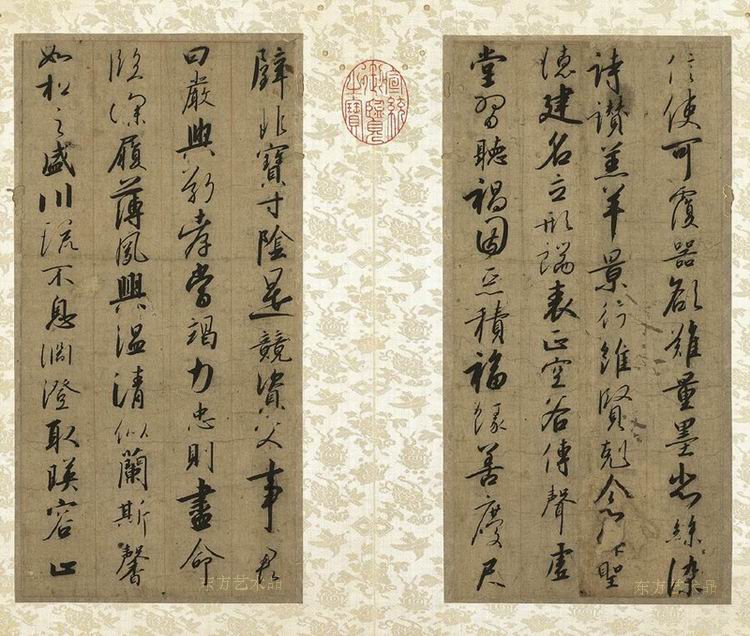 信使可覆器欲難量墨悲絲染
詩讚羔羊景行維賢剋念作聖
德建名立形端表正空谷傳聲虛
堂習聽禍因惡積福緣善慶尺
宣統
御覽
之寶
璧非寶寸陰是競資父事君
曰嚴與敬孝當竭力忠則盡命
臨深履薄夙興溫清似蘭斯馨
如松之盛川流不息淵澄取暎容止
东方艺术品
东方艺术品